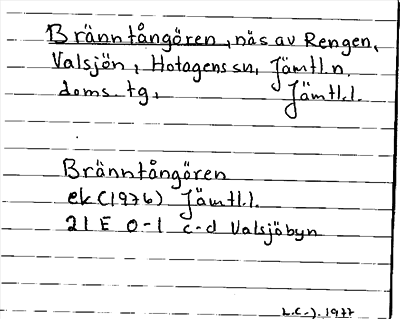 Bränntångören, näs av Rengen,
Valsjön, Hotagens sn, Jämtl.n.
doms. tg, Jämtl.l.
Bränntångören
ek (1976) Jämtl.l.
21 E 0-1 c-d Valsjöbyn
L.C-J. 1977